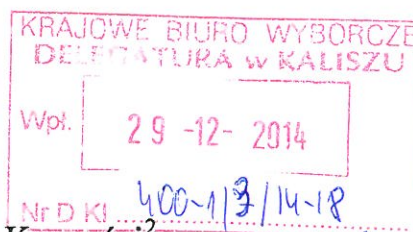 KRAJOWE BIURO WYBORCZE
DELEGATURA w KALISZU
Wpł. 29 -12- 2014
Nr D Kl 400-1/3/14-18